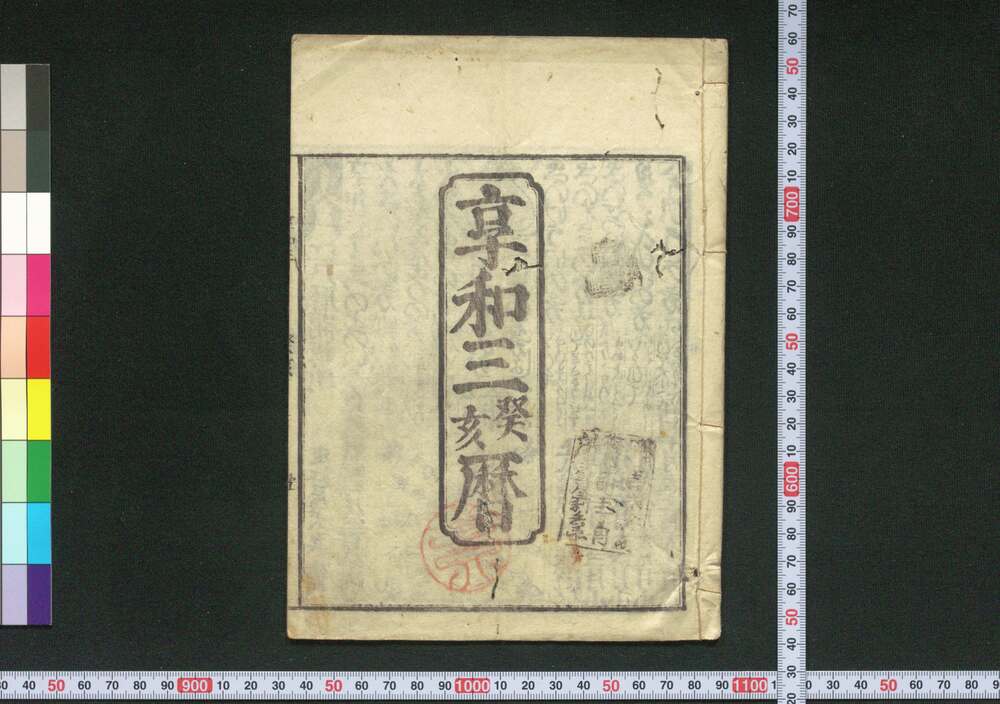 享和三癸亥暦
70
60
50
40
30
20
10
700
90
80
70
60
50
40
30
20
10
600
90
80
70
60
50
40
30
20
30 40 50 60 70 80 90 900 10 20 30 40 50 60 70 80 90 1000 10 20 30 40 50 60 70 80 90 1100 1 20 30 40 50 60 70 80 9